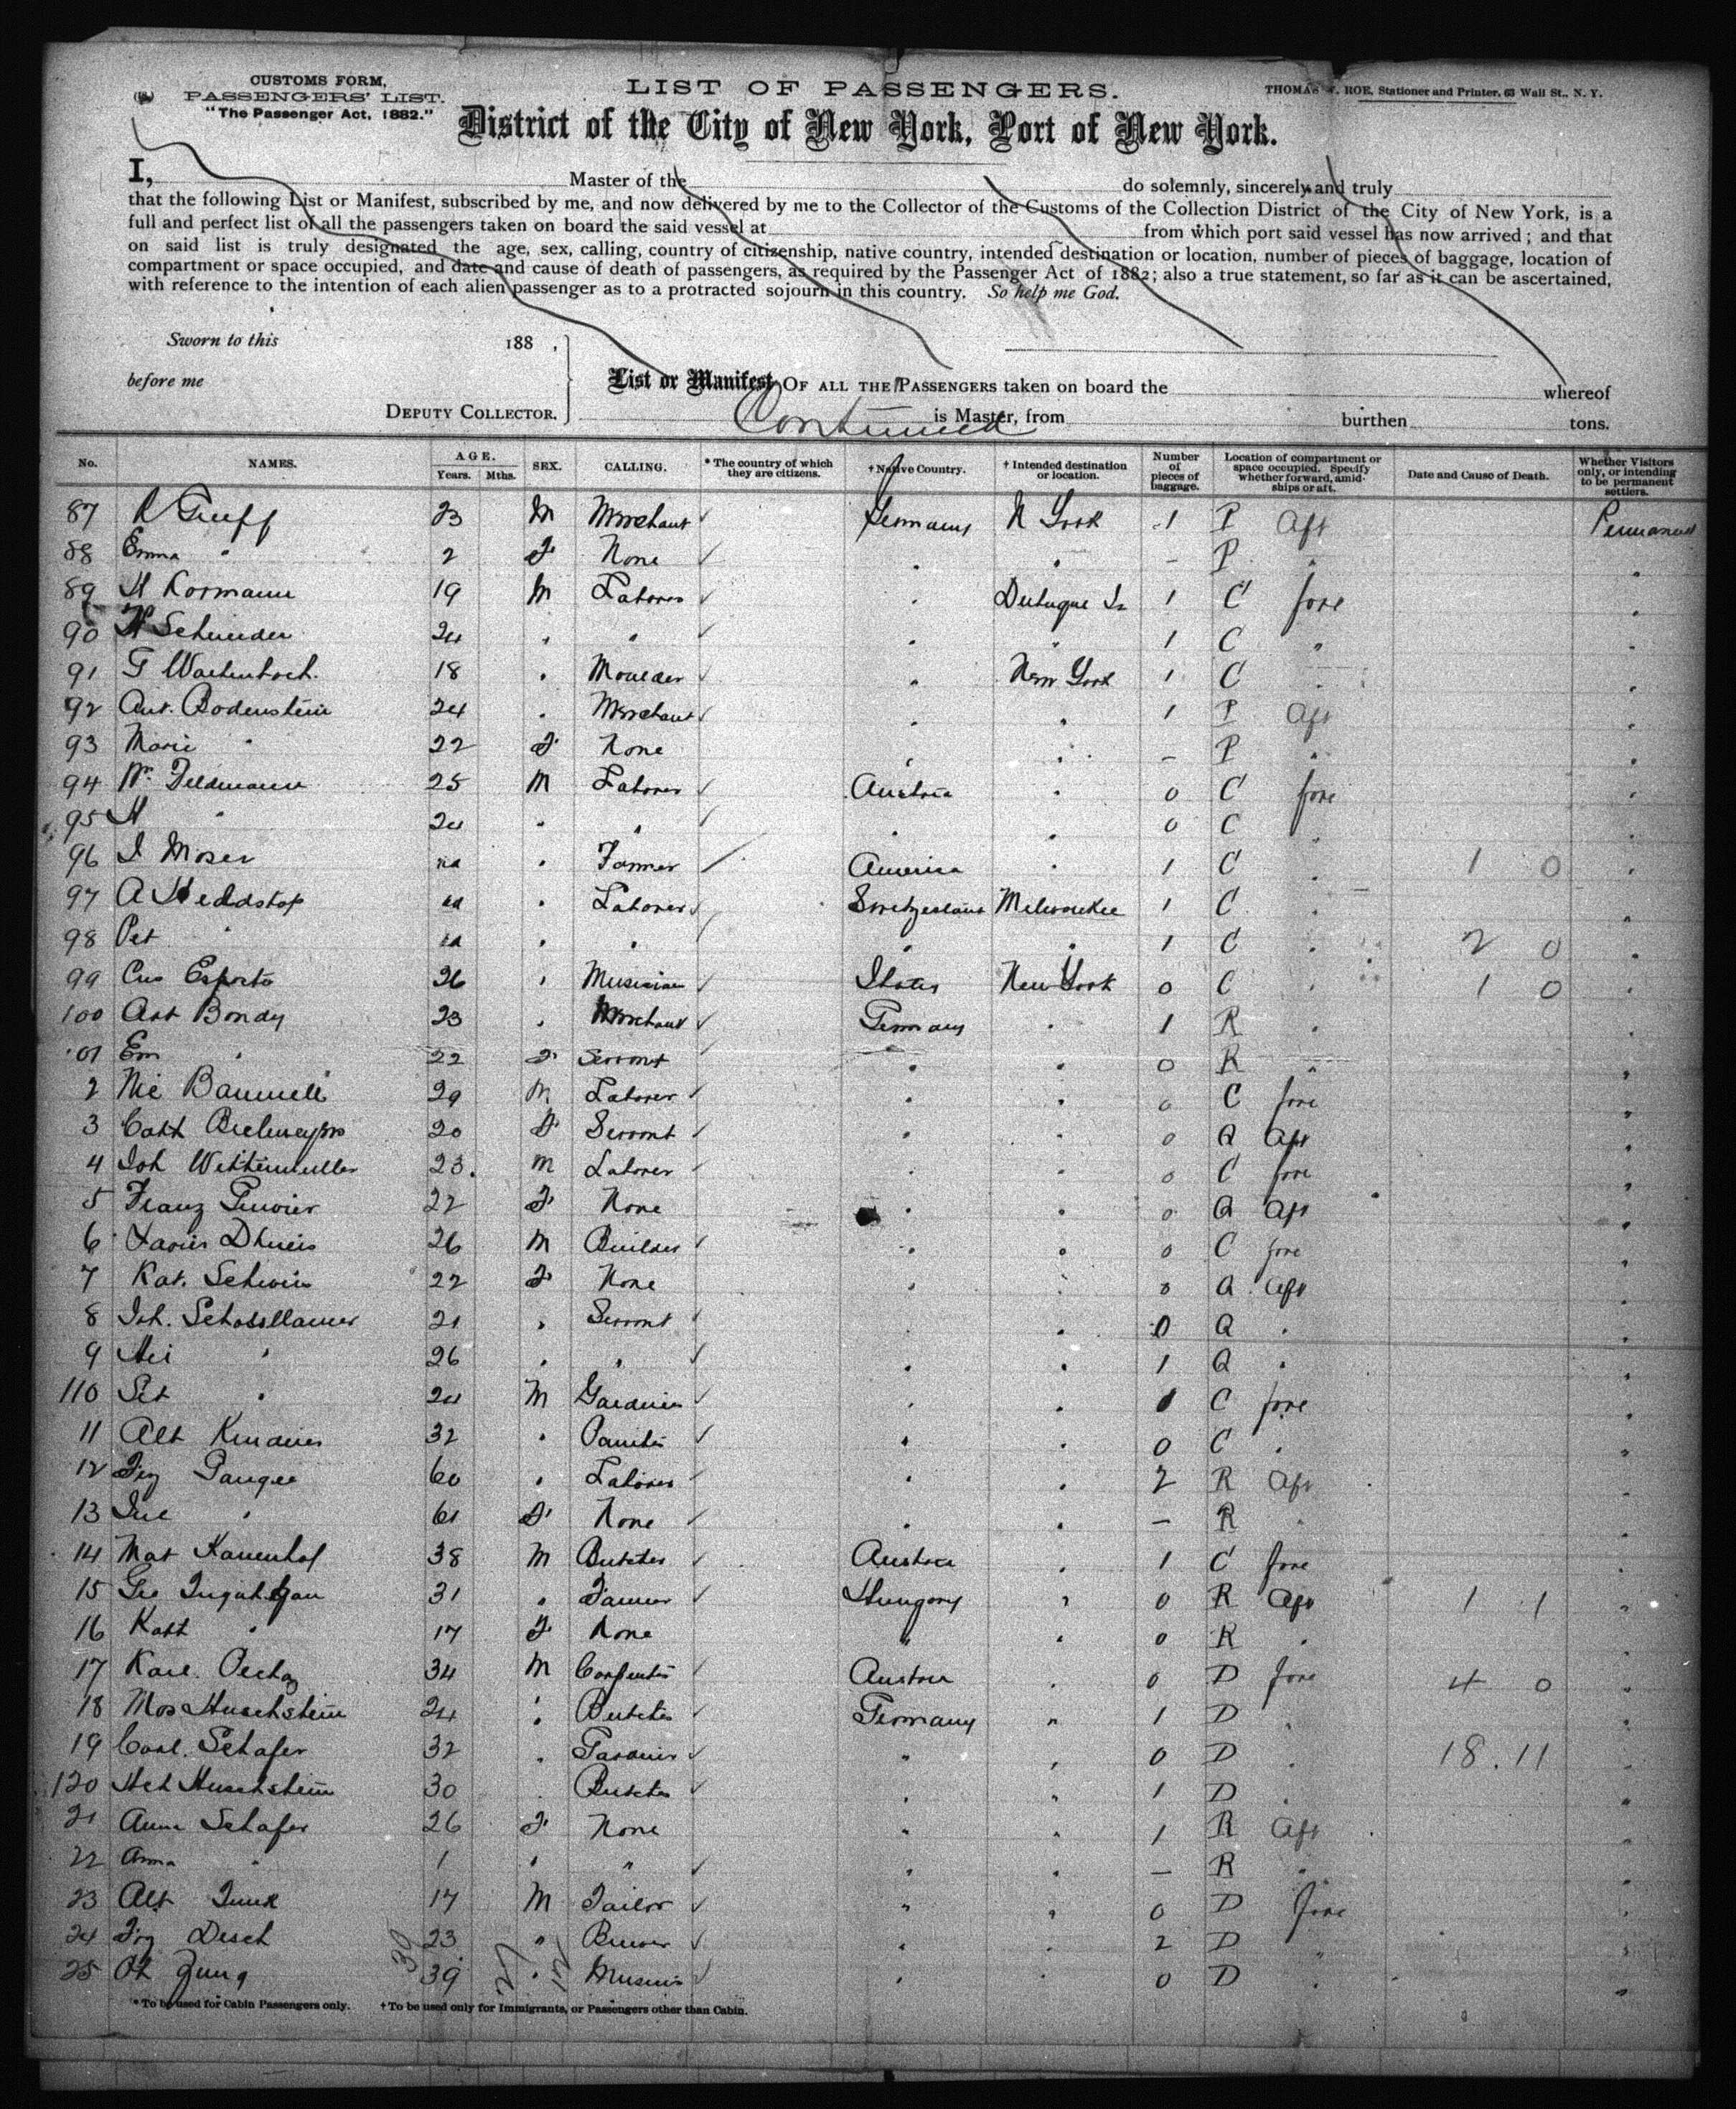 CUSTOMS FORM,
PASSENGERS' LIST.
"The Passenger Act, 1882."
LIST OF PASSENGERS.
THOMAS ROE, Stationer and Printer, 63 Wall St., N. Y.
District of the City of New York, Port of New York.
I, Master of the do solemnly, sincerely and truly
that the following List or Manifest, subscribed by me, and now delivered by me to the Collector of the Customs of the Collection District of the City of New York, is a
full and perfect list of all the passengers taken on board the said vessel at from which port said vessel has now arrived; and that
on said list is truly designated the age, sex, calling, country of citizenship, native country, intended destination or location, number of pieces of baggage, location of
compartment or space occupied, and date and cause of death of passengers, as required by the Passenger Act of 1882; also a true statement, so far as it can be ascertained,
with reference to the intention of each alien passenger as to a protracted sojourn in this country. So help me God.
Sworn to this 188 ,
before me
DEPUTY COLLECTOR.
List or Manifest OF ALL THE PASSENGERS taken on board the whereof
is Master, from burthen tons.
Continued
No. NAMES. AGE. Years. Mths. SEX. CALLING. * The country of which they are citizens. † Native Country. † Intended destination or location. Number of pieces of baggage. Location of compartment or space occupied. Specify whether forward, amidships or aft. Date and Cause of Death. Whether Visitors only, or intending to be permanent settlers.
87 R 23 M Merchant Germany N York 1 P Aft Permanent
88 Emma " 2 F None " " - P " "
89 H Kormann 19 M Laborer " Dubuque Ia 1 C fore "
90 H Schneider 24 " " " " 1 C " "
91 G 18 " Moulder " New York 1 C " "
92 Ant. Bodenstein 24 " Merchant " " 1 P Aft "
93 Marie " 22 F None " " - P " "
94 Wm Feldmann 25 M Laborer Austria " 0 C fore "
95 H " 24 " " " " 0 C " "
96 J Moser " Farmer America " 1 C " 1 0 "
97 A " Laborer Switzerland Milwaukee 1 C " "
98 Pet " " " " " 1 C " 2 0 "
99 Esposito 26 " Musician Italy New York 0 C " 1 0 "
100 Art Bondy 23 " Merchant Germany " 1 R " "
101 Em " 22 F Servant " " 0 R " "
2 Nic 29 M Laborer " " 0 C fore "
3 Cath 20 F Servant " " 0 Q Aft "
4 Joh Wittenmuller 23 M Laborer " " 0 C fore "
5 Franz 22 F None " " 0 Q Aft "
6 Xavier 26 M Builder " " 0 C fore "
7 Kat. 22 F None " " 0 Q Aft "
8 Joh. 21 " Servant " " 0 Q " "
9 " 26 " " " " 1 Q " "
110 " 24 M Gardener " " C fore "
11 Alb 32 " Painter " " 0 C " "
12 60 " Laborer " " 2 R Aft "
13 " 61 F None " " - R " "
14 Mat 38 M Butcher Austria " 1 C fore "
15 Geo 31 " Farmer Hungary " 0 R Aft 1 1 "
16 Kath " 17 F None " " 0 R " "
17 Karl 34 M Carpenter Austria " 0 D fore 4 0 "
18 Mos Hirschstein 24 " Butcher Germany " 1 D " "
19 Carl. Schafer 32 " Gardener " " 0 D " 18 . 11 "
120 Hirschstein 30 Butcher " " 1 D " "
21 Anna Schafer 26 F None " " 1 R Aft "
22 Anna " 1 " " " " - R " "
23 Alb Junk 17 M Tailor " " 0 D fore "
24 Desch 23 " Brewer " " 2 D " "
25 Jung 39 " Musician " " 0 D " "
30 27 12
* To be used for Cabin Passengers only. † To be used only for Immigrants, or Passengers other than Cabin.